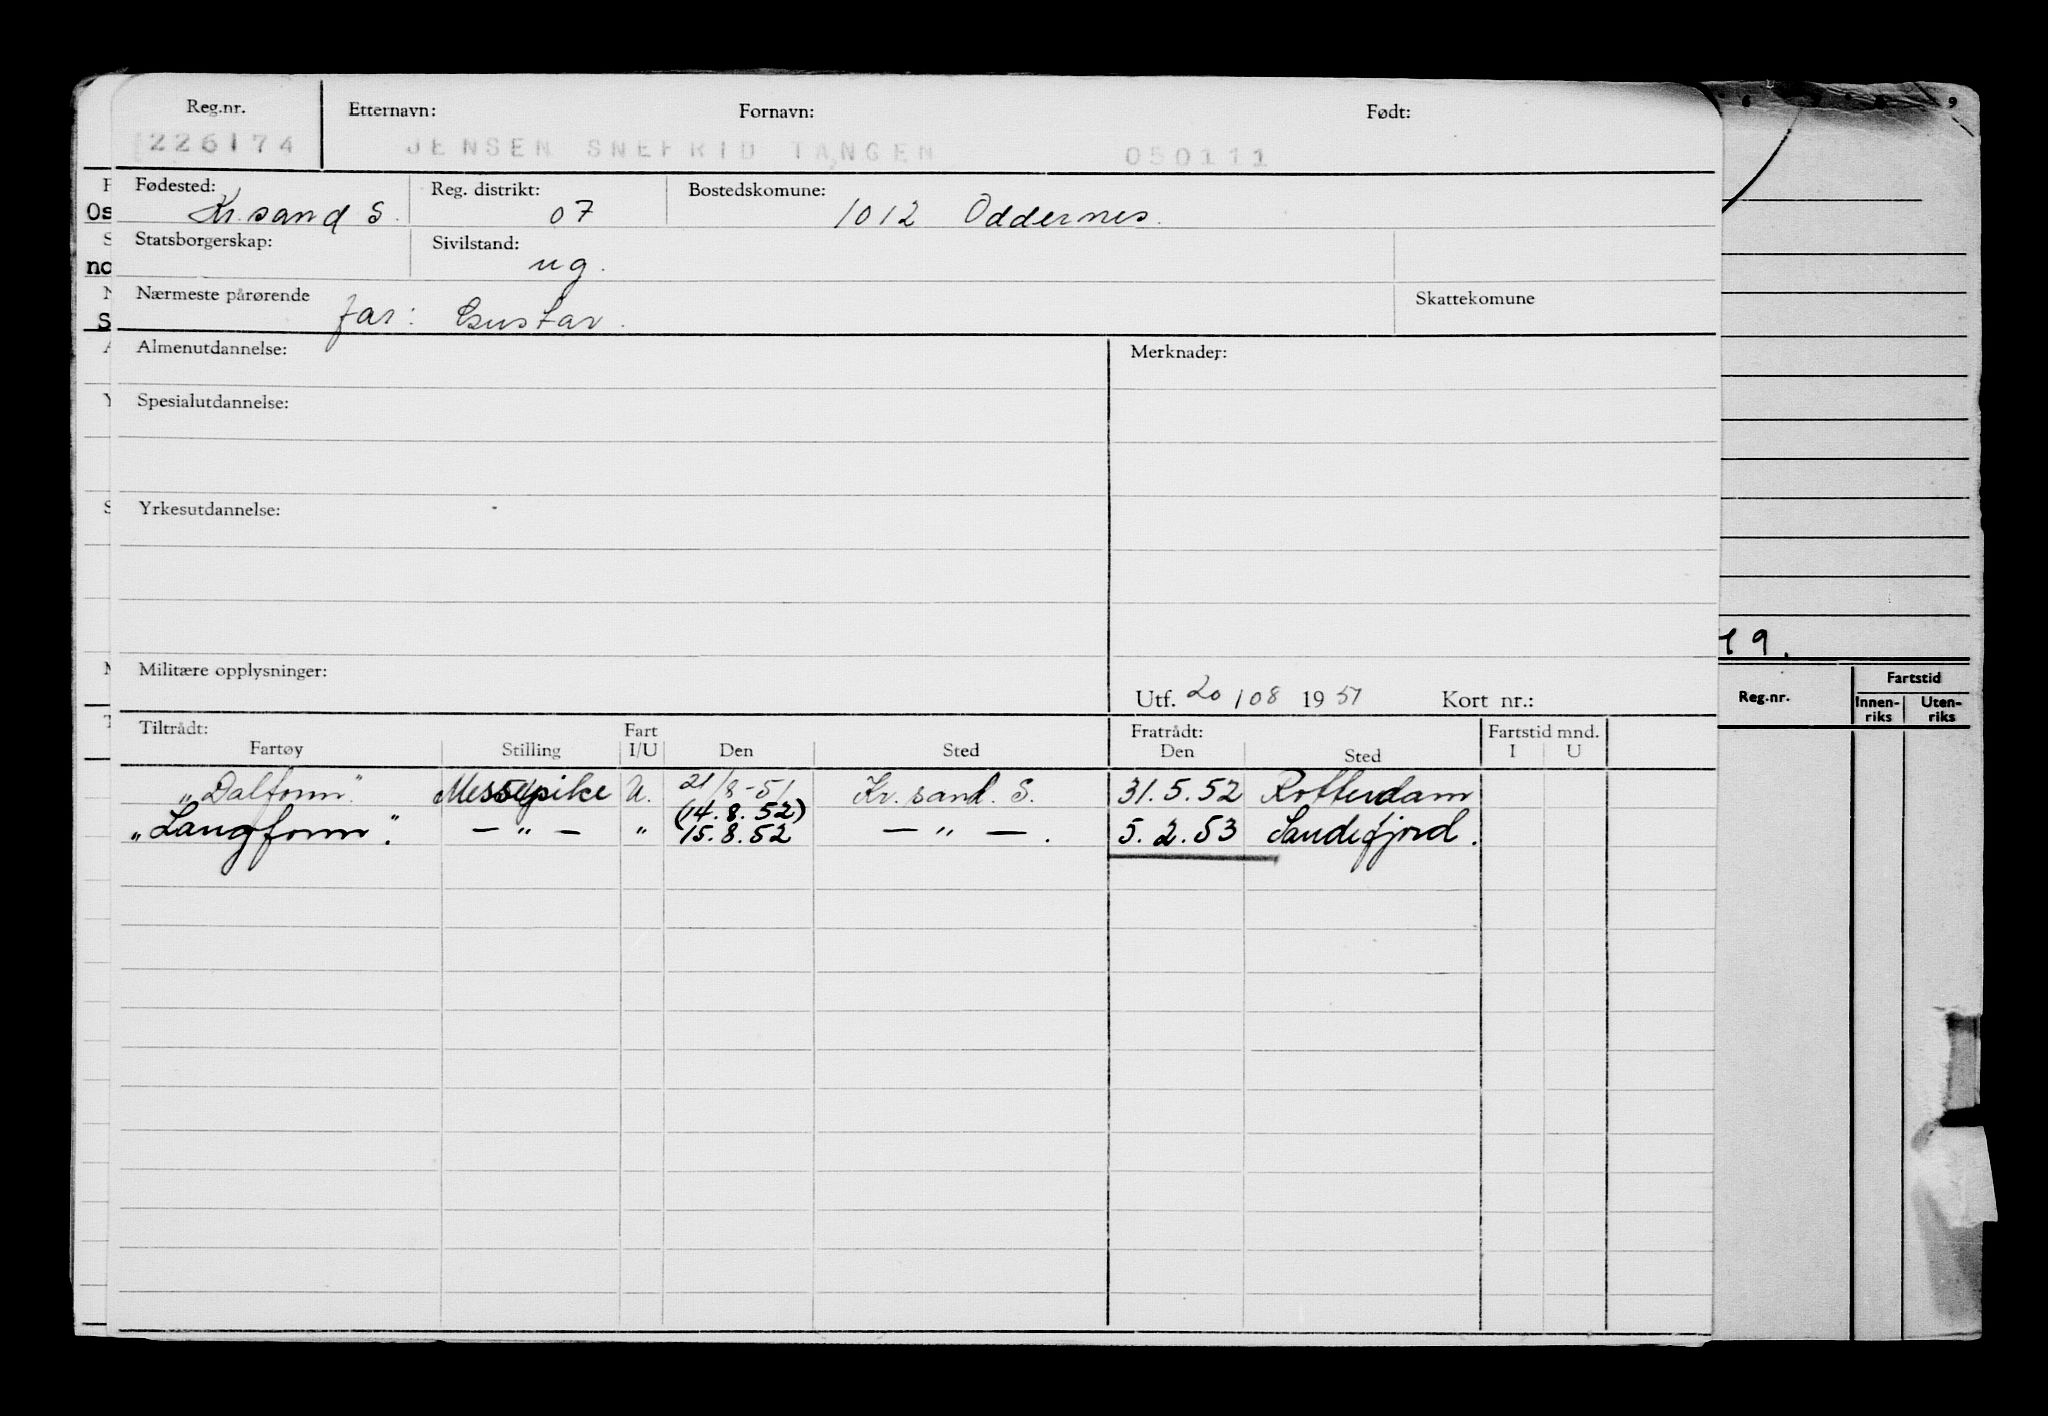 Reg.nr. Etternavn: Fornavn: Født:
226174 JENSEN SNEFRID TANGEN 050111
Fødested: Reg. distrikt: Bostedskomune:
Kr.sand S. 07 1012 Oddernes.
Statsborgerskap: Sivilstand:
ug.
Nærmeste pårørende Skattekomune
far: Gustav.
Almenutdannelse: Merknader:
Spesialutdannelse:
Yrkesutdannelse:
Militære opplysninger:
Utf. 20/08 1951 Kort nr.:
Tiltrådt: Fart Fratrådt: Fartstid mnd.
Fartøy Stilling I/U Den Sted Den Sted I U
"Dalfonn" Messepike U. 21/8-51 Kr.sand. S. 31.5.52 Rotterdam
(14.8.52)
"Langfonn". — " — " 15.8.52 — " — . 5.2.53 Sandefjord.
Os
no
S
9
9.
Reg.nr. Fartstid
Innen-riks Uten-riks